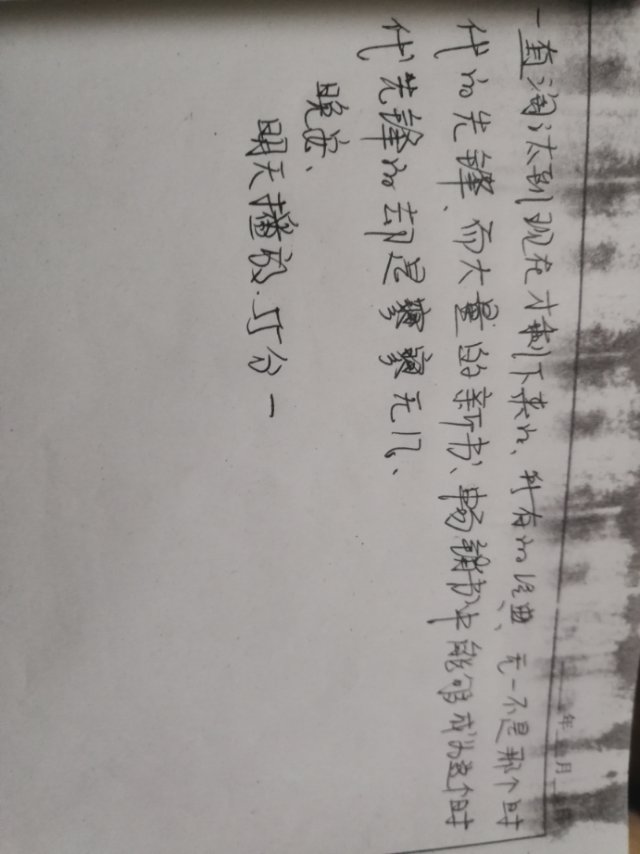 一直淘汰到现在才剩下来的、所有的经典、无一不是那个时
代的先锋、而大量的新书、畅销书中能够成为这个时
代先锋的却是寥寥无几、
晚安、
明天播放.
分一
年 月